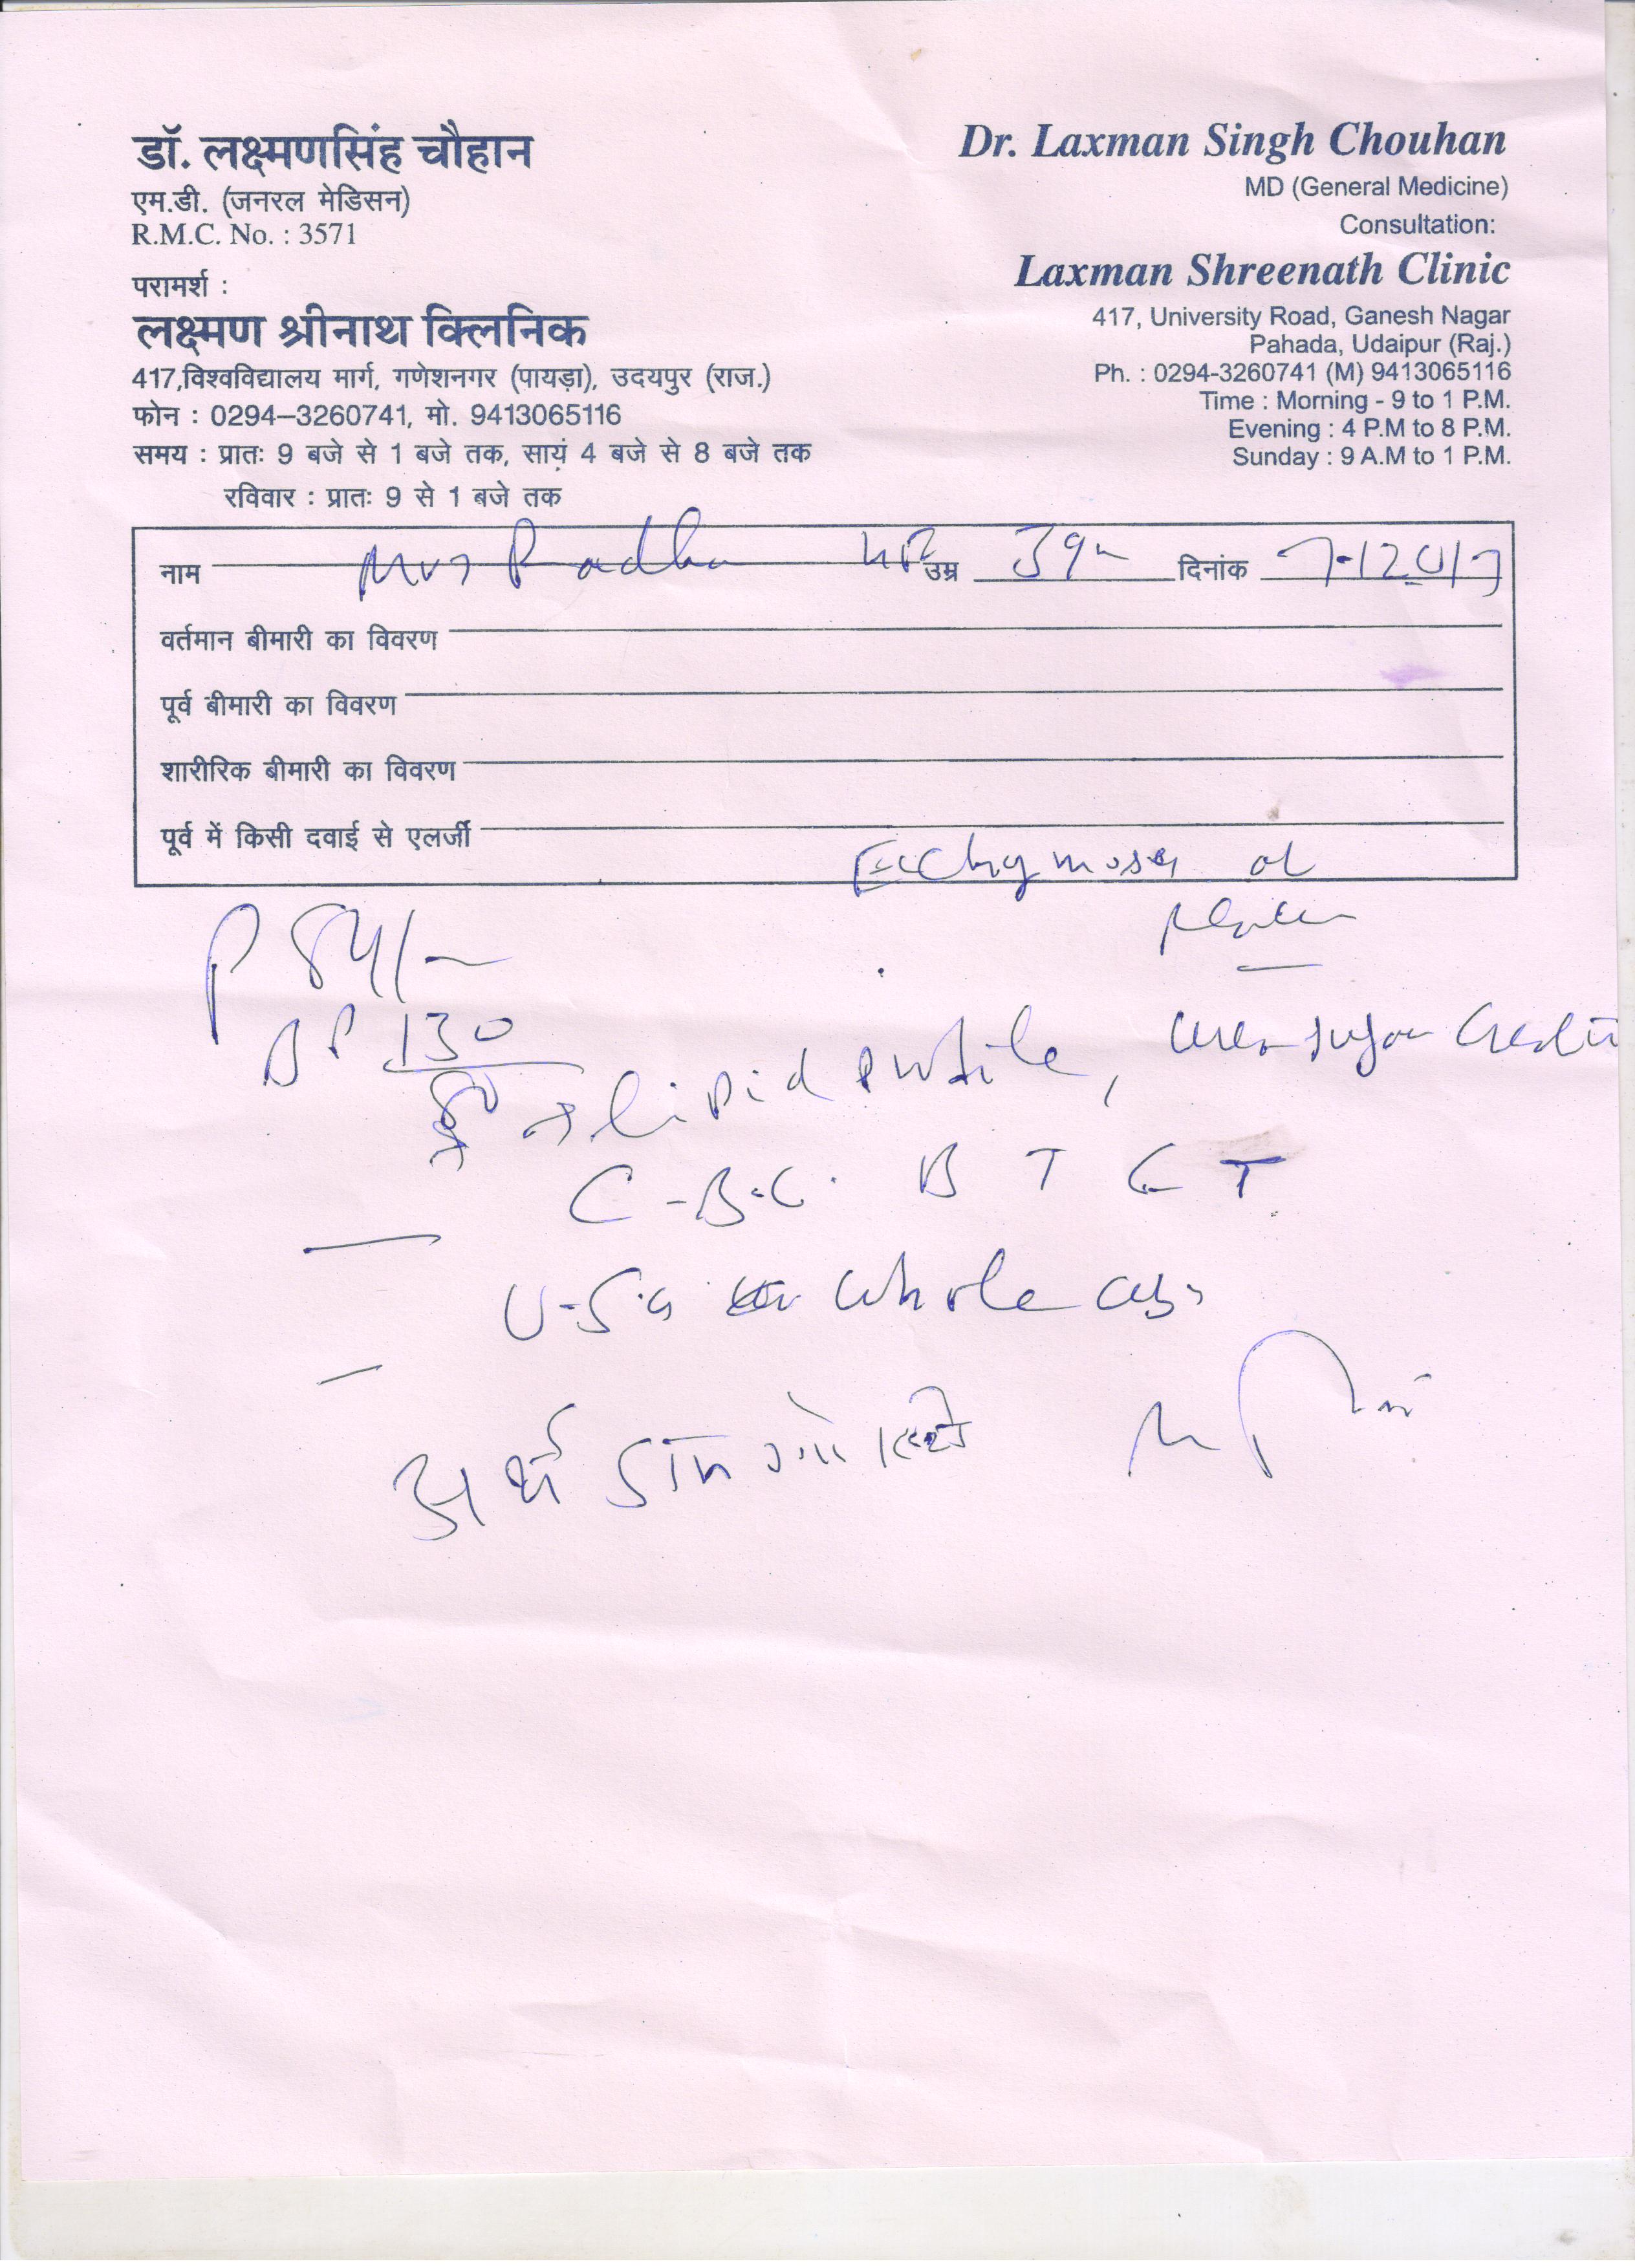 डॉ. लक्ष्मणसिंह चौहान
एम.डी. (जनरल मेडिसन)
R.M.C. No. : 3571
परामर्श :
लक्ष्मण श्रीनाथ क्लिनिक
417,विश्वविद्यालय मार्ग, गणेशनगर (पायड़ा), उदयपुर (राज.)
फोन : 0294–3260741, मो. 9413065116
समय : प्रातः 9 बजे से 1 बजे तक, सायं 4 बजे से 8 बजे तक
रविवार : प्रातः 9 से 1 बजे तक
Dr. Laxman Singh Chouhan
MD (General Medicine)
Consultation:
Laxman Shreenath Clinic
417, University Road, Ganesh Nagar
Pahada, Udaipur (Raj.)
Ph. : 0294-3260741 (M) 9413065116
Time : Morning - 9 to 1 P.M.
Evening : 4 P.M to 8 P.M.
Sunday : 9 A.M to 1 P.M.
नाम Mrs Radha उम्र 39 दिनांक 7-12017
वर्तमान बीमारी का विवरण
पूर्व बीमारी का विवरण
शारीरिक बीमारी का विवरण
पूर्व में किसी दवाई से एलर्जी
Ecchymosis
P 84/-
BP 130
lipid profile, sugar
C-B.C. B T C T
U.S.G whole
अर्थ